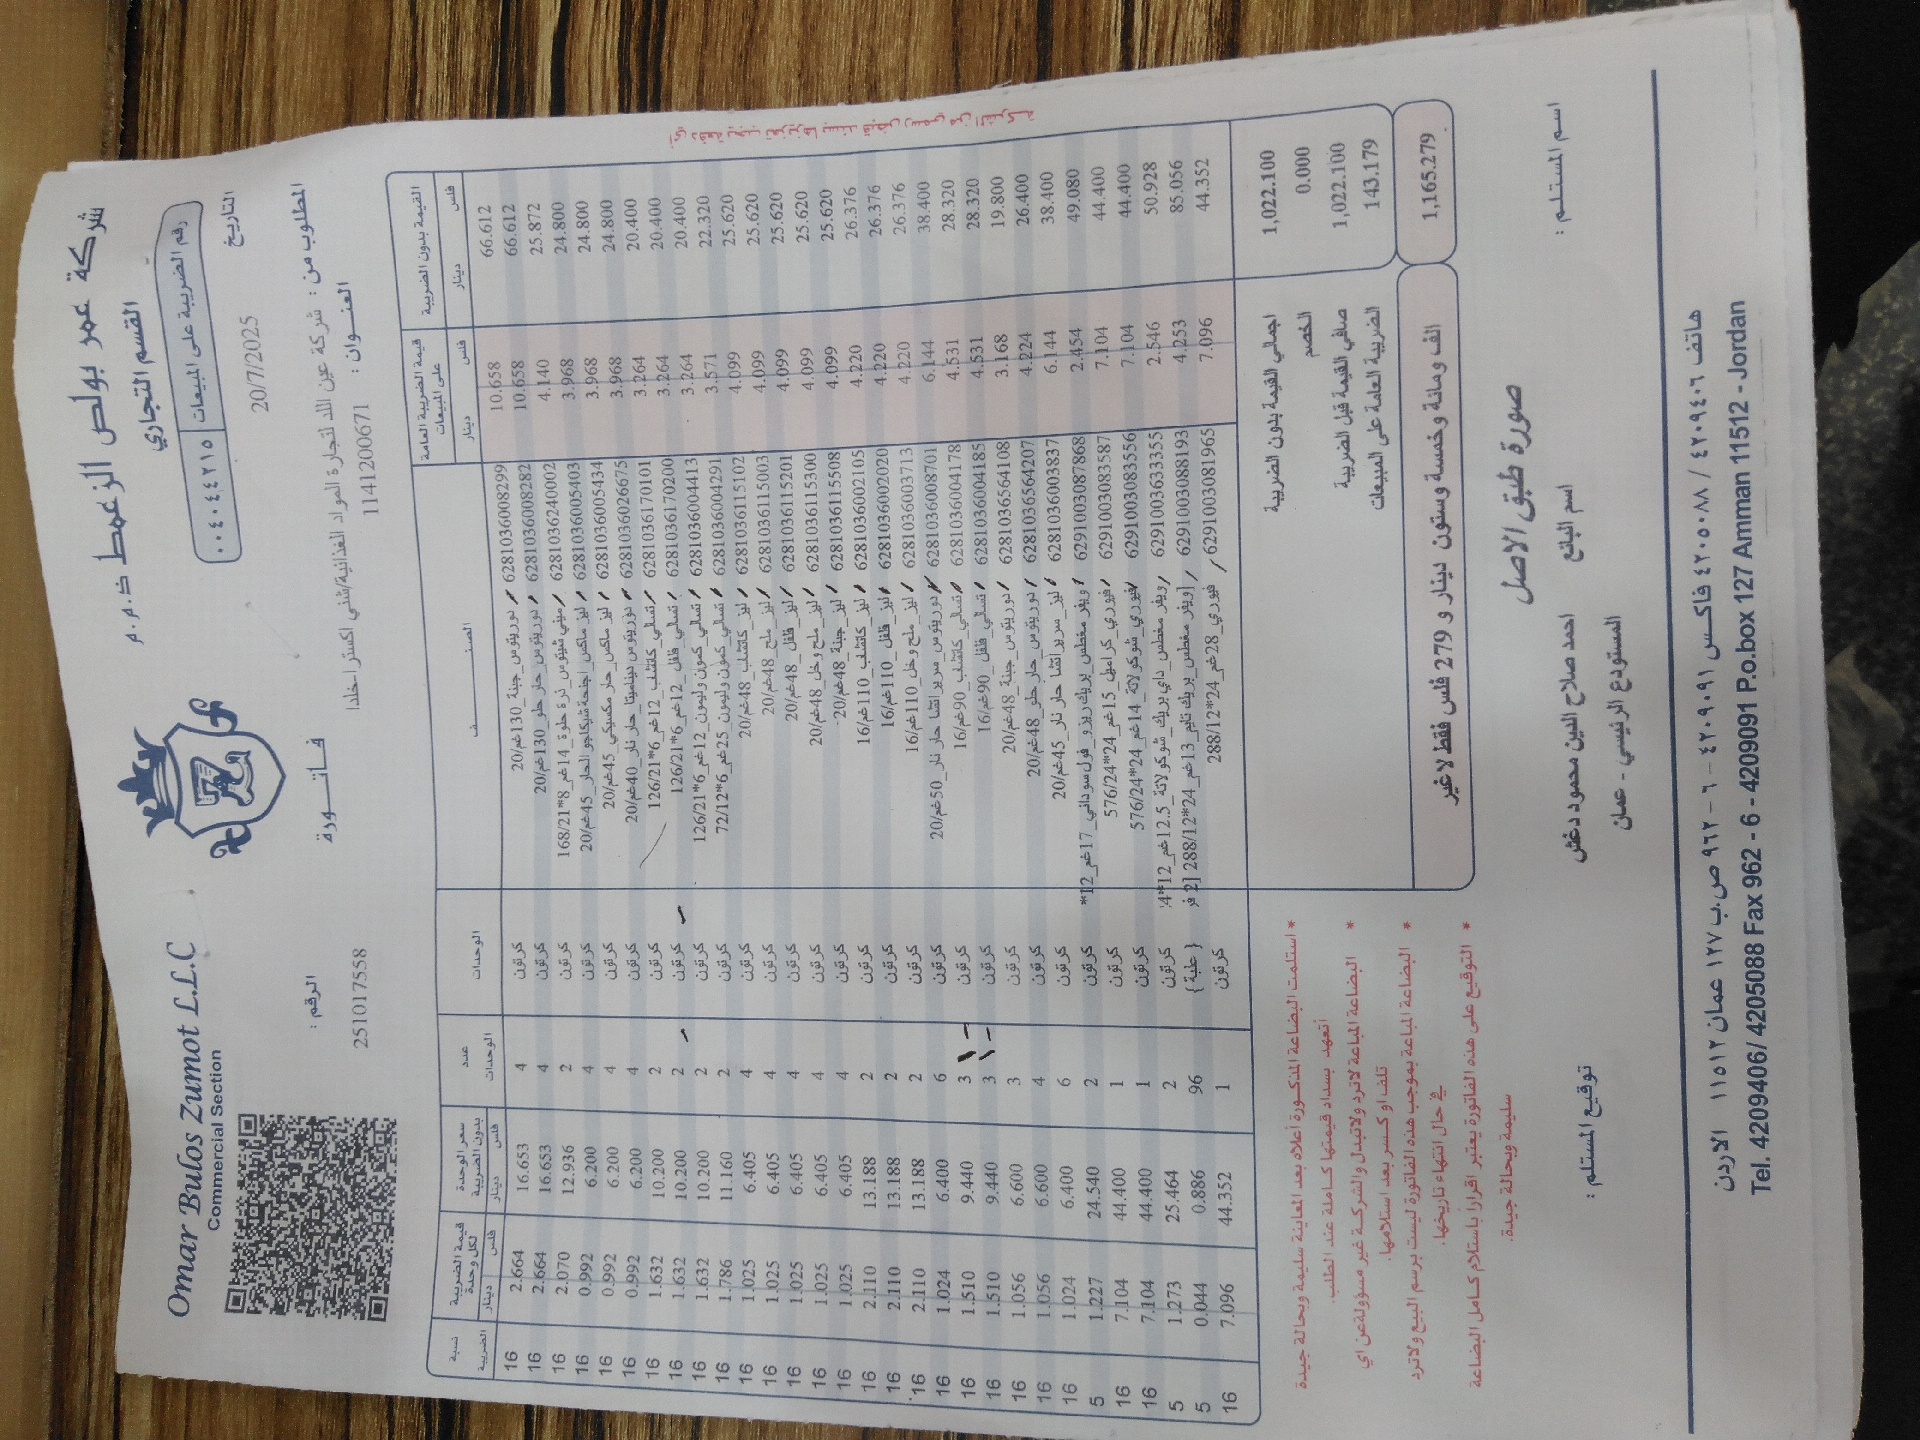 Omar Bulos Zumot L.L.C
Commercial Section
شركة عمر بولص الزعمط ذ.م.م
القسم التجاري
رقم الضريبة على المبيعات ٠٠٤٠٤٤٢١٥
التاريخ
20/7/2025
الرقم :
251017558
فاتورة
المطلوب من : شركة عين اللد لتجارة المواد الغذائية/شني إكسترا-خلدا
العنوان : 1141200671
القيمة بدون الضريبة قيمة الضريبة العامة على المبيعات الصنف الوحدات عدد الوحدات سعر الوحدة بدون الضريبة قيمة الضريبة لكل وحدة نسبة الضريبة
فلس دينار فلس دينار فلس دينار فلس دينار
66.612 10.658 6281036008299 دوريتوس_جبنة_130غم/20 كرتون 4 16.653 2.664 16
66.612 10.658 6281036008282 دوريتوس_حار حلو_130غم/20 كرتون 4 16.653 2.664 16
25.872 4.140 6281036240002 ميني شيتوس_ذرة حلوة_14غم_8*168/21 كرتون 2 12.936 2.070 16
24.800 3.968 6281036005403 ليز ماكس_اجنحة شيكاجو الحار_45غم/20 كرتون 4 6.200 0.992 16
24.800 3.968 6281036005434 ليز ماكس_حار مكسيكي_45غم/20 كرتون 4 6.200 0.992 16
24.800 3.968 6281036026675 دوريتوس ديناميتا_حار نار_40غم/20 كرتون 4 6.200 0.992 16
20.400 3.264 6281036170101 تسالي_كاتشب_12غم_6*126/21 كرتون 2 10.200 1.632 16
20.400 3.264 6281036170200 تسالي_فلفل_12غم_6*126/21 كرتون 2 10.200 1.632 16
20.400 3.264 6281036004413 تسالي_كمون وليمون_12غم_6*126/21 كرتون 2 10.200 1.632 16
22.320 3.571 6281036004291 تسالي_كمون وليمون_25غم_6*72/12 كرتون 2 11.160 1.786 16
25.620 4.099 6281036115102 ليز_كاتشب_48غم/20 كرتون 4 6.405 1.025 16
25.620 4.099 6281036115003 ليز_ملح_48غم/20 كرتون 4 6.405 1.025 16
25.620 4.099 6281036115201 ليز_فلفل_48غم/20 كرتون 4 6.405 1.025 16
25.620 4.099 6281036115300 ليز_ملح وخل_48غم/20 كرتون 4 6.405 1.025 16
25.620 4.099 6281036115508 ليز_جبنة_48غم/20 كرتون 4 6.405 1.025 16
26.376 4.220 6281036002105 ليز_كاتشب_110غم/16 كرتون 2 13.188 2.110 16
26.376 4.220 6281036002020 ليز_فلفل_110غم/16 كرتون 2 13.188 2.110 16
26.376 4.220 6281036003713 ليز_ملح وخل_110غم/16 كرتون 2 13.188 2.110 16
38.400 6.144 6281036008701 دوريتوس_سريراتشا حار نار_50غم/20 كرتون 6 6.400 1.024 16
28.320 4.531 6281036004178 تسالي_كاتشب_90غم/16 كرتون 3 9.440 1.510 16
28.320 4.531 6281036004185 تسالي_فلفل_90غم/16 كرتون 3 9.440 1.510 16
19.800 3.168 6281036564108 دوريتوس_جبنة_48غم/20 كرتون 3 6.600 1.056 16
26.400 4.224 6281036564207 دوريتوس_حار حلو_48غم/20 كرتون 4 6.600 1.056 16
38.400 6.144 6281036003837 ليز_سريراتشا حار نار_45غم/20 كرتون 6 6.400 1.024 16
49.080 2.454 6291003087868 ويفر مغطس_بريك ريزو_فول سوداني_17غم_12* كرتون 2 24.540 1.227 5
44.400 7.104 6291003083587 فيوري_كراميل_15غم_24*576/24 كرتون 1 44.400 7.104 16
44.400 7.104 6291003083556 فيوري_شوكولاتة_14غم_24*576/24 كرتون 1 44.400 7.104 16
50.928 2.546 6291003633355 ويفر مغطس_داي بريك_شوكولاتة_12.5غم_12*4: كرتون 2 25.464 1.273 5
85.056 4.253 6291003088193 [ويفر مغطس_بريك تايم_13غم_24*288/12 [2 فر { علبة } 96 0.886 0.044 5
44.352 7.096 6291003081965 فيوري_28غم_24*288/12 كرتون 1 44.352 7.096 16
اجمالي القيمة بدون الضريبة 1,022.100
الخصم 0.000
صافي القيمة قبل الضريبة 1,022.100
الضريبة العامة على المبيعات 143.179
الف ومائة وخمسة وستون دينار و 279 فلس فقط لاغير 1,165.279
* استلمت البضاعة المذكورة أعلاه بعد المعاينة سليمة وبحالة جيدة
أتعهد بسداد قيمتها كاملة عند الطلب.
* البضاعة المباعة لاترد ولاتبدل والشركة غير مسؤولة عن اي
تلف او كسر بعد استلامها.
* البضاعة المباعة بموجب هذه الفاتورة ليست برسم البيع ولاترد
في حال انتهاء تاريخها.
* التوقيع على هذه الفاتورة يعتبر اقرارا باستلام كامل البضاعة
سليمة وبحالة جيدة.
صورة طبق الاصل
اسم المستلم :
اسم البائع احمد صلاح الدين محمود دغش
المستودع الرئيسي - عمان
توقيع المستلم :
هاتف ٤٢٠٩٤٠٦ / ٤٢٠٥٠٨٨ فاكس ٤٢٠٩٠٩١ - ٦ - ٩٦٢ ص.ب ١٢٧ عمان ١١٥١٢ الاردن
Tel. 4209406/ 4205088 Fax 962 - 6 - 4209091 P.o.box 127 Amman 11512 - Jordan